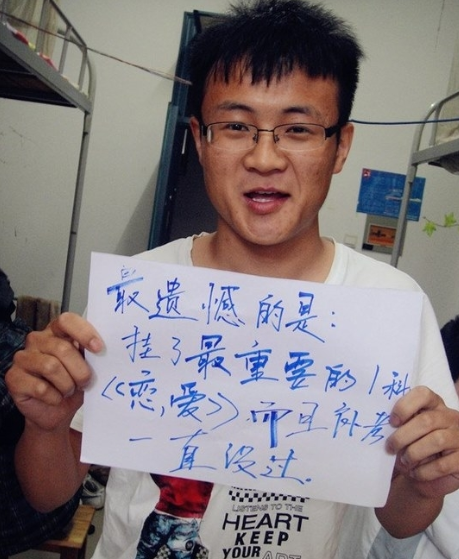 最遗憾的是：
挂了最重要的1科
《恋爱》而且补考
一直没过。
LISTENS TO THE
HEART
KEEP
YOUR